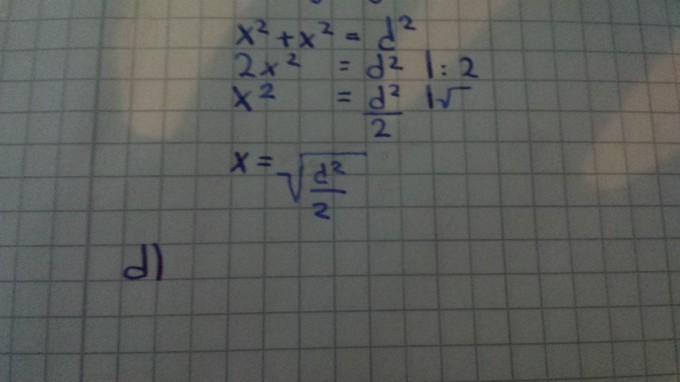 x² + x² = d²
2x² = d² | : 2
x² = d²/2 | √
x = √(d²/2)
d)